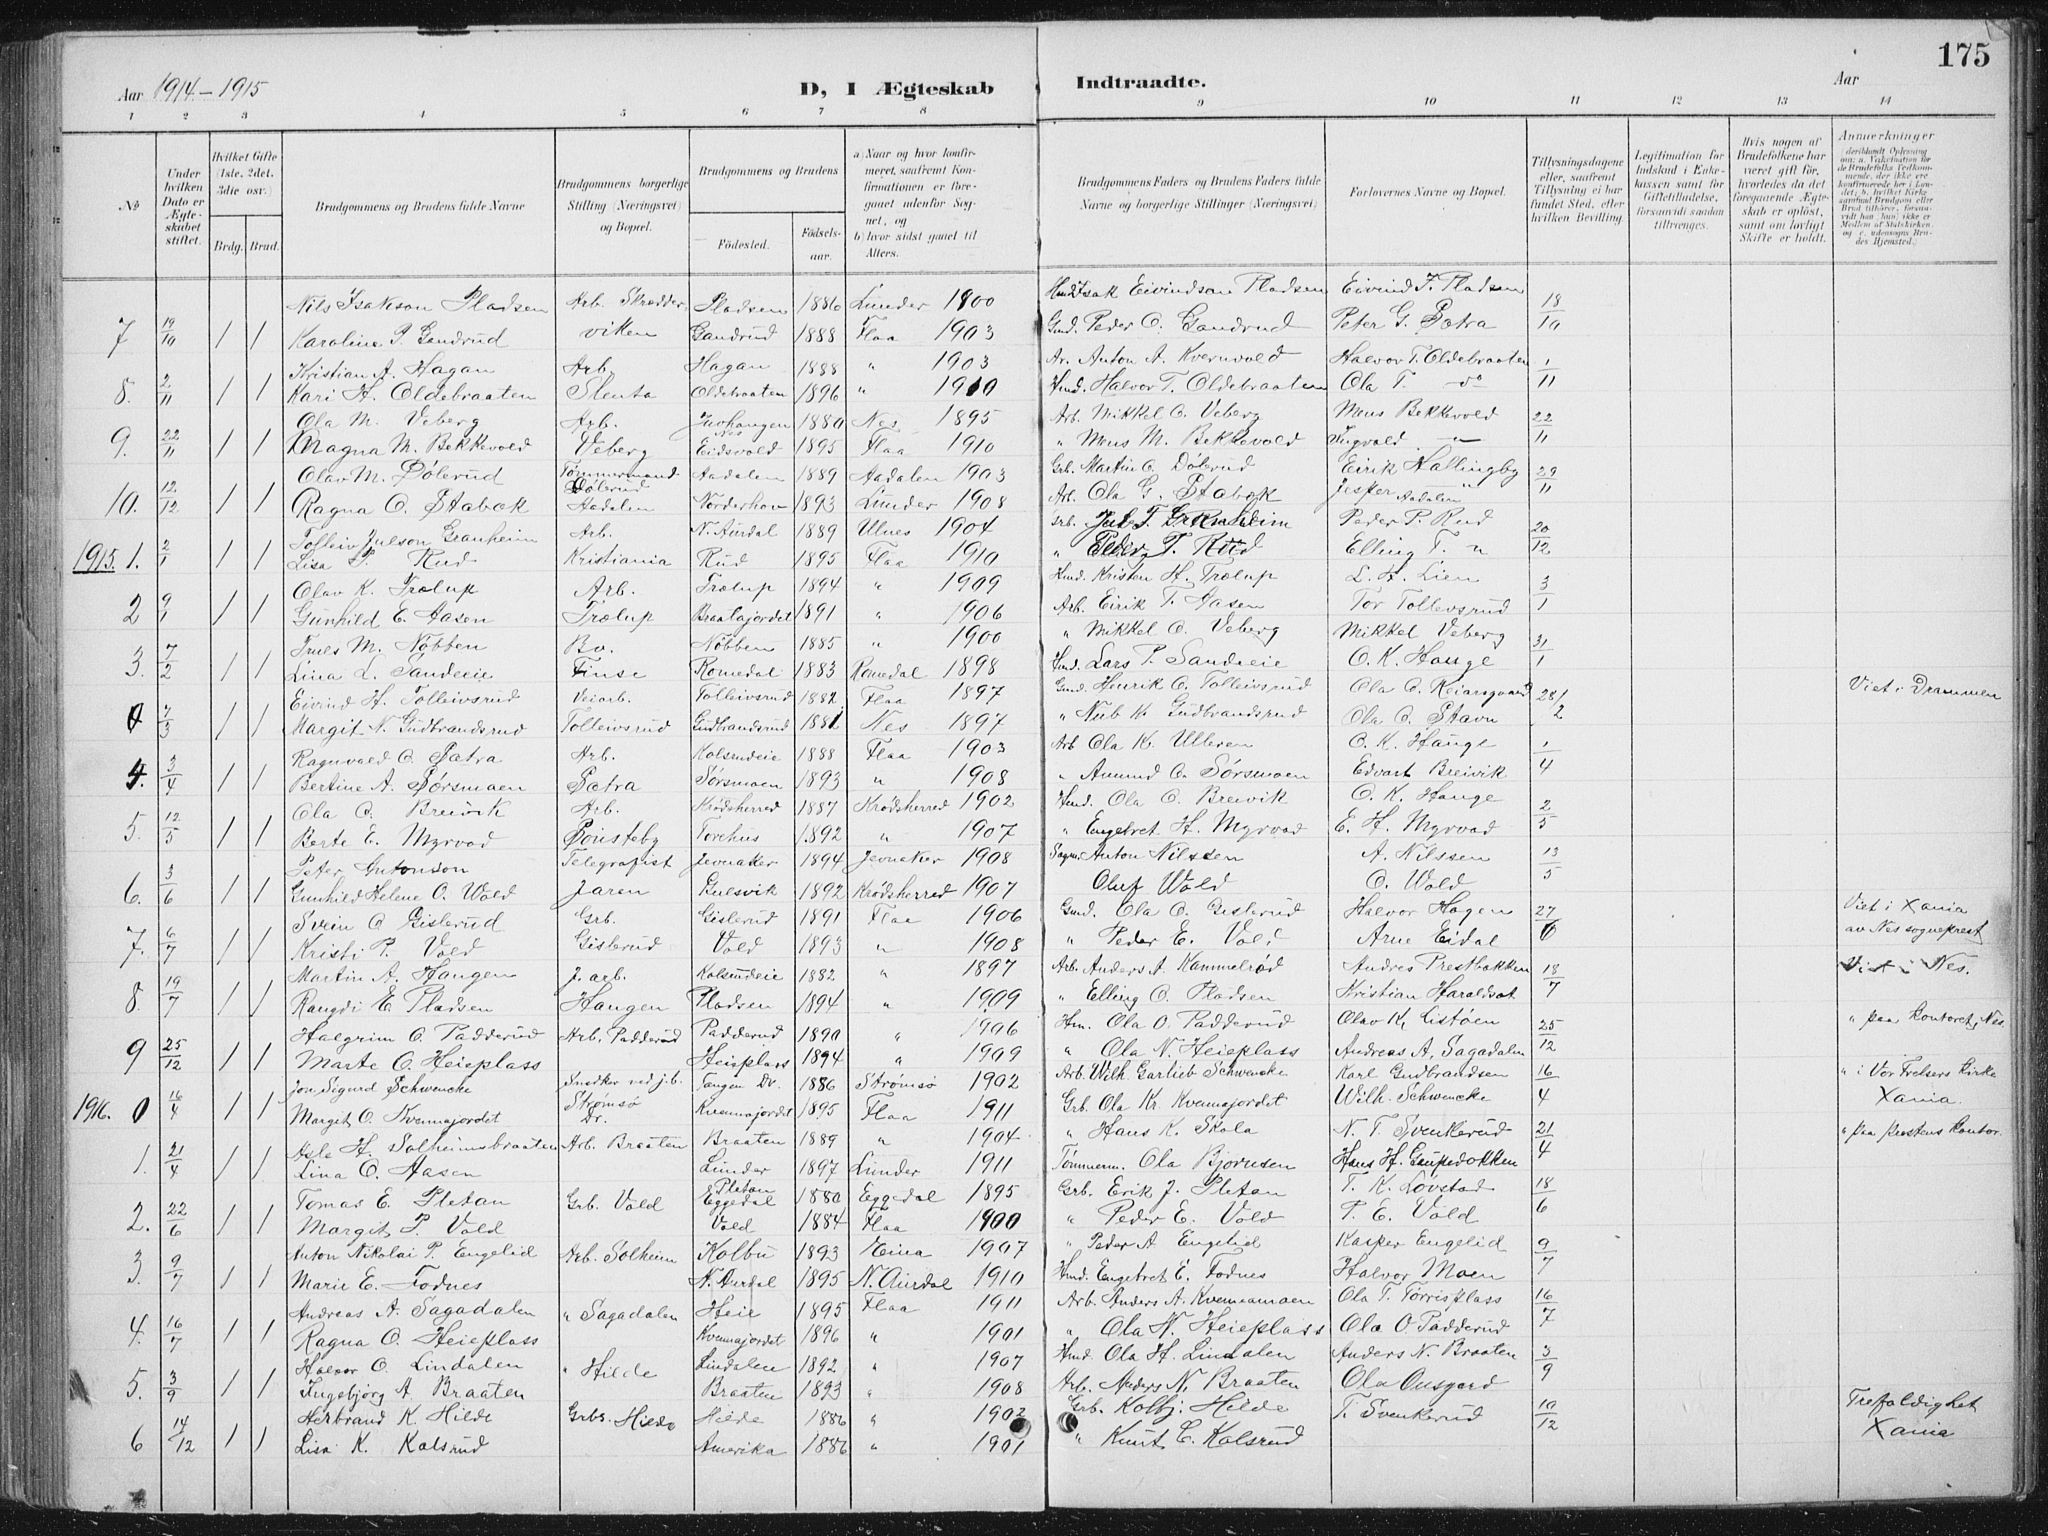 175
Aar 1914-1915 D, I Ægteskab Indtraadte. Aar
1 2 3 4 5 6 7 8 9 10 11 12 13 14
No
Under hvilken Dato er Ægteskabet stiftet.
Hvilket Gifte (1ste, 2det, 3die osv.)
Brdg. Brud.
Brudgommens og Brudens fulde Navne
Brudgommens borgerlige Stilling (Næringsvei) og Bopæl.
Brudgommens og Brudens
Fødested. Fødselsaar.
a) Naar og hvor konfirmeret, saafremt Konfirmationen er foregaaet udenfor Sognet, og
b) hvor sidst gaaet til Alters.
Brudgommens Faders og Brudens Faders fulde Navne og borgerlige Stillinger (Næringsvei)
Forlovernes Navne og Bopæl.
Tillysningsdagene eller, saafremt Tillysning ei har fundet Sted, efter hvilken Bevilling.
Legitimation for Indskud i Enkekassen samt for Giftetilladelse, forsaavidt saadan tiltrænges.
Hvis nogen af Brudefolkene har været gift før, hvorledes da det foregaaende Ægteskab er opløst, samt om lovligt Skifte er holdt.
Anmerkninger
Nils Isakson Pladsen Arb. Skrædder Pladsen 1886 Lunder 1900 Isak Eivindsen Pladsen Eivind I. Pladsen 18
7 19/10 1 1 Karoline P. Gandrud viken Gandrud 1888 Flaa 1903 Gmd. Peder O. Gandrud Peter G. Sætra 10
Kristian A. Hagan Arb. Hagan 1888 " 1903 Ar. Anton A. Kvernvold Halvor T. Oldebraaten 1
8. 2/11 1 1 Kari H. Oldebraaten Slenta Oldebraaten 1896 " 1910 Hmd. Halvor T. Oldebraaten Ola T. do 11
Ola M. Veberg Arb. Nes 1880 Nes 1895 Arb. Mikkel O. Veberg Mons Bekkevold 22
9. 22/11 1 1 Magna M. Bekkevold Veberg Eidsvold 1895 Flaa 1910 " Mons M. Bekkevold Ingvald " 11
Olav M. Dølerud Tømmermand Aadalen 1889 Aadalen 1903 Grb. Martin O. Dølerud Eirik Hallingby 29
10. 12/12 1 1 Ragna O. Stabæk Dølerud Aadalen Norderhov 1893 Lunder 1908 Arb. Ola G. Stabæk Jesper Aadalen " 11
Tolleiv Julson Granheim Arb. N. Aurdal 1889 Ulnes 1904 Grb. Jul T. Granheim Peder P. Rud 20
1915. 1. 2/1 1 1 Lisa P. Rud Kristiania Rud 1895 Flaa 1910 " Peder T. Rud Elling T. " 12
Olav K. Trælup Arb. Trælup 1894 " 1909 Hmd. Kristen H. Trælup L. H. Lien 3
2 9/1 1 1 Gunhild E. Aasen Trælup Braatajordet 1891 " 1906 Arb. Eirik T. Aasen Tor Tollevsrud 1
Truls M. Nøbben Bv. Nøbben 1885 " 1900 " Mikkel O. Veberg Mikkel Veberg 31
3. 7/2 1 1 Lina L. Sandeie Finse Romedal 1883 Romedal 1898 Hmd. Lars P. Sandeie O. K. Hauge 1
Eivind H. Tolleivsrud Veiarb. Tolleivsrud 1882 Flaa 1897 Gmd. Henrik O. Tolleivsrud Ola O. Reiarsgaard 28/2 Viet i Drammen
0 7/3 1 1 Margit N. Gudbrandsrud Tolleivsrud Gudbrandsrud 1881 Nes 1897 " Nub K. Gudbrandsrud Ola O. Stavn
Ragnvald O. Sætra Arb. Kolsrudeie 1888 Flaa 1903 Arb Ola K. Ulleren O. K. Hauge 1
4. 3/4 1 1 Bertine A. Sørsmoen Sætra Sørsmoen 1893 " 1908 " Amund O. Sørsmoen Edvart Breivik 4
Ola O. Breivik Arb. Krødsherred 1887 Krødsherred 1902 Hmd. Ola O. Breivik O. K. Hauge 2
5. 12/5 1 1 Berte E. Myrvad Sønsteby Torehus 1892 " 1907 " Engebret H. Myrvad E. H. Myrvad 5
Peter Antonson Telegrafist Jevnaker 1894 Jevnaker 1908 Anton Nilssen A. Nilssen 13
6. 3/6 1 1 Gunhild Helene O. Wold Jaren Gulsvik 1892 Krødsherred 1907 Oluf Wold O. Wold 5
Svein O. Gislerud Grb. Gislerud 1891 Flaa 1906 Gmd. Ola O. Gislerud Halvor Hagen 27 Viet i Xania
7. 6/7 1 1 Kristi P. Vold Gislerud Vold 1893 " 1908 " Peder E. Vold Arne Eidal 6 av Nes sogneprest
Martin A. Haugen J. arb. Kolsrudeie 1882 " 1897 Arb. Anders A. Kammeliød Andres Prestbakken 18 Viet i Nes.
8 19/7 1 1 Rangdi E Pladsen Haugen Pladsen 1894 " 1909 " Elling O. Pladsen Kristian Haraldset 7
Halgrim O. Padderud Arb. Padderud Padderud 1890 " 1906 Hm. Ola O. Padderud Olav K. Listøen 25 " paa kontoret, Nes.
9 25/12 1 1 Marte O. Heieplass Heieplass 1894 " 1909 " Ola N. Heieplass Andreas A. Sagadalen 12
Jon Sigurd Schwencke Snedker ved j.b. Tangen Dr. 1886 Strømsø 1902 Arb. Wilh. Garlieb Schwencke Karl Gudbrandsen 16 " i Vor Frelsers Kirke
1916. 0 16/4 1 1 Margit O. Kvennajordet Strømsø Dr. Kvennajordet 1895 Flaa 1911 Grb. Ola Kr. Kvennajordet Wilh. Schwencke 4 Xania.
Asle H. Solheimsbraaten Arb. Braaten Braaten 1889 " 1904 " Hans K. Skola N. T. Svenkerud 21 " paa prestens kontor.
1. 21/4 1 1 Lina O. Aasen Lunder 1897 Lunder 1911 Tømmerm. Ola Bjørnsen Hans H. Gaupedokken 4
Tomas E. Pletan Grb. Vold Pletan Eggedal 1880 Eggedal 1895 Grb. Erik J. Pletan T. K. Løvstad 18
2. 22/6 1 1 Margit P. Vold Vold 1884 Flaa 1900 " Peder E. Vold P. E. Vold 6
Anton Nikolai P. Engelid Arb. Solheim Kolbu 1893 Eina 1907 " Peder A. Engelid Kasper Engelid 9
3. 9/7 1 1 Marie E. Fodnes N. Aurdal 1895 N. Aurdal 1910 Hmd. Engebret E. Fodnes Halvor Moen 7
Andreas A. Sagadalen " Sagadalen Heie 1895 Flaa 1911 Arb. Anders A. Kvennamoen Ola T. Torrisplass 16
4. 16/7 1 1 Ragna O. Heieplass Kvennajordet 1896 " 1901 " Ola N. Heieplass Ola O Padderud 7
Halvor O. Lindalen " Hilde Lindalen 1892 " 1907 Hmd. Ola H. Lindalen Anders N. Braaten 3
5. 3/9 1 1 Ingebjørg A. Braaten Braaten 1893 " 1908 Arb. Anders N. Braaten Ola Ousgard 9
Herbrand K. Hilde Grbs. Hilde Hilde 1886 " 1902 Grb. Kolbj. Hilde T. Svenkerud 10 Trefoldighet
6 14/12 1 1 Lisa K. Kolsrud Amerika 1886 " 1901 " Knut E. Kolsrud 12 Xania